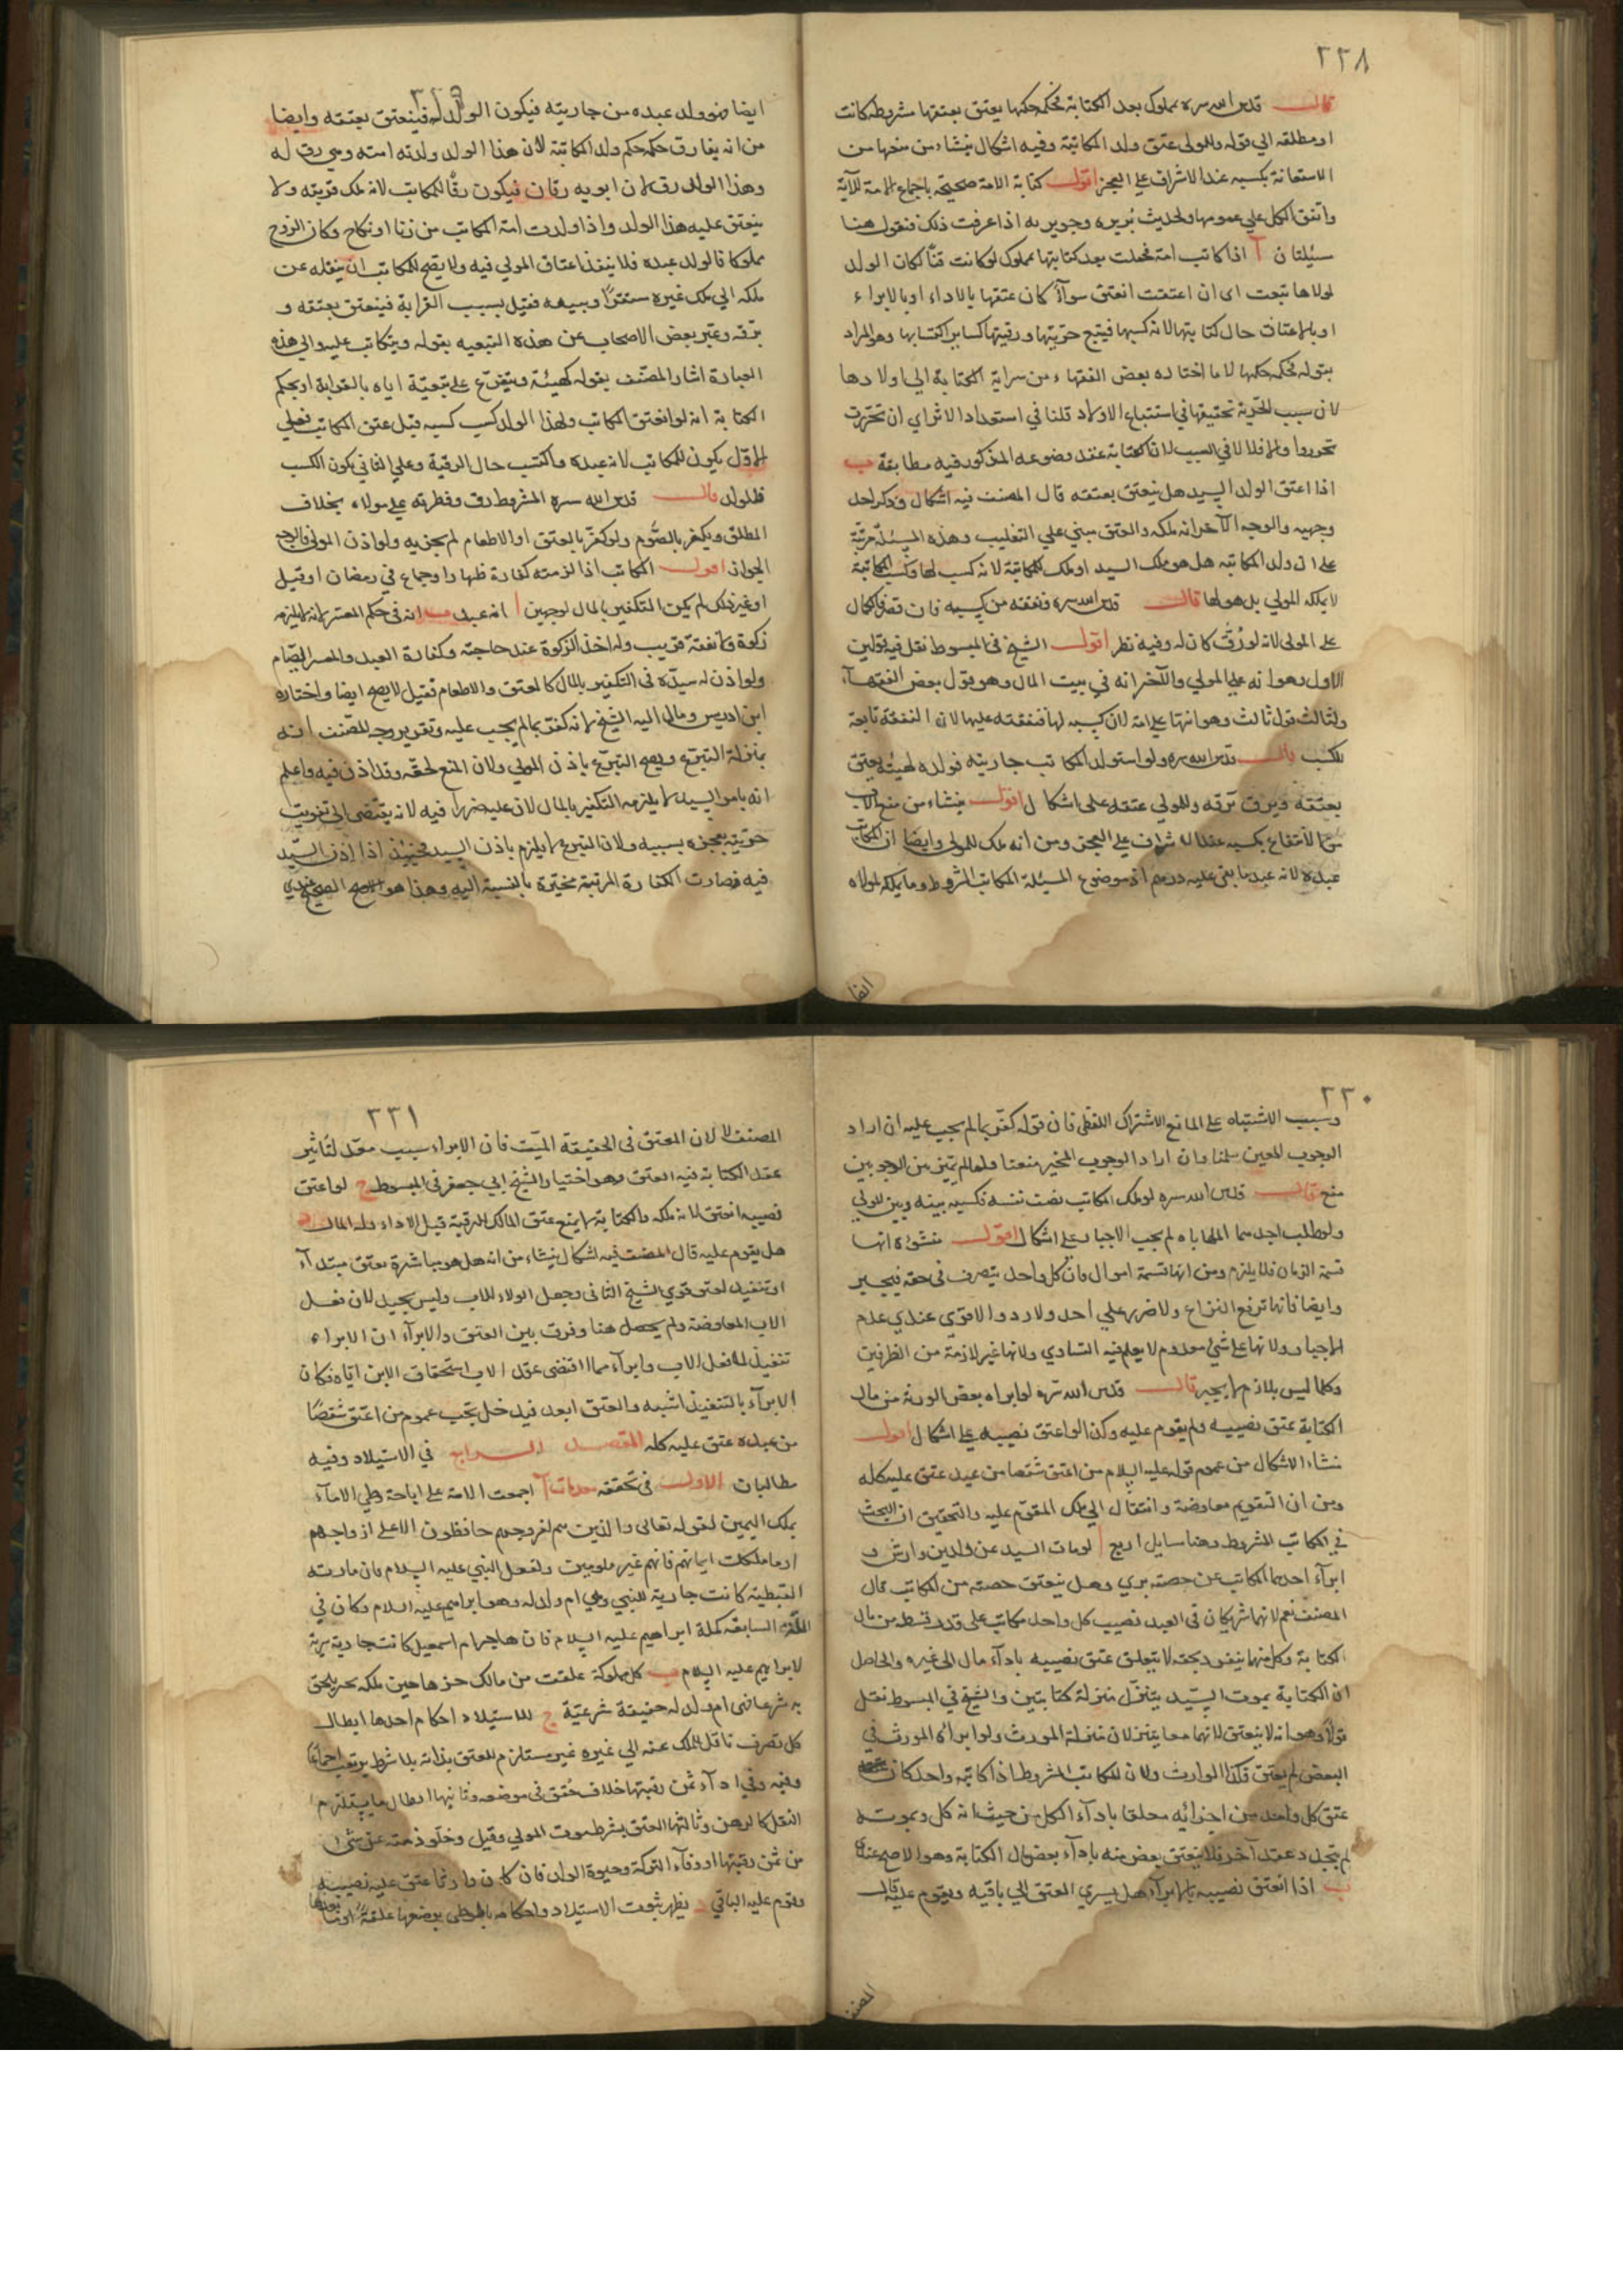 ٢٢٨
قال قدس الله سره بمملوك بعد الكتابة فحكمه حكمها يعتق بعتقها مشروطة كانت
او مطلقه الي قوله وللمولى عتق ولد المكاتبة وفيه اشكال ينشاء من منعها من
الاستعانة بكسبه عند الاشراف علي العجز اقول كتابة الامة صحيحة باجماع الامة للآية
واتفق الكل علي عمومها ولحديث بريره وجويريه اذا عرفت ذلك فنقول هنا
مسئلتان آ اذا كاتب امة فحملت بعد كتابتها بمملوك لو كانت قنّا لكان الولد
لمولاها تبعت اى ان اعتقت انعتق سوآءٌ كان عتقها بالاداء او بالابراء
او بالاعتاق حال كتابتها لانه كسبها فيتبع حريتها ورقيتها كساير اكتسابها وهو المراد
بقوله فحكمه حكمها لا ما اختاره بعض الفقهاء من سراية الكتابة الي اولادها
لان سبب الحرية تحقيقها في استتباع الاولاد قلنا في استعداد الاثر اي ان تحررت
تحرروا والا فلا لا في السبب لان الكتابة عقد وضوعه المذكور فيه مطابقة ب
اذا اعتق الولد السيد هل ينعتق بعتقه قال المصنف فيه اشكال وذكر احد
وجهيه والوجه الآخر انه ملكه والعتق مبني علي التغليب وهذه المسئلة مرتبة
على ان ولد المكاتبه هل هو ملك السيد او ملك للمكاتبة لانه كسب لها وكسب المكاتبة
لا يملكه المولي بل هو لها قال قدس الله سره ونفقته من كسبه فان قصر فالكمال
على المولى لانه لو رُقّ كان له وفيه نظر اقول الشيخ في المبسوط نقل فيه قولين
الاول وهو انه علي المولي والآخر انه في بيت المال وهو قول بعض الفقهآء
ولنا ثالث قول ثالث وهو انها على امه لان كسبه لها فنفقته عليها لان النفقة تابعة
للكسب قال قدس الله سره ولو استولد المكاتب جاريته فولده كهيئته يعتق
بعتقه ويرق برقه وللمولي عتقه على اشكال اقول ينشاء من منع الاب
من الانتفاع بكسبه عند الاشراف علي العجز ومن انه ملك للمولى وايضا ان المكاتب
عبده لانه عبد ما بقى عليه درهم اذ موضوع المسئلة المكاتب المشروط وما يملكه لمولاه
ايضا فهو ولد عبده من جاريته فيكون الولد له فينعتق بعتقه وايضا
من انه يفارق حكمه حكم ولد المكاتبة لان هذا الولد ولدته امته وهي رق له
وهذا الولد رق لان ابويه رقان فيكون رقّا للمكاتب لانه ملك قريبه ولا
ينعتق عليه هذا الولد واذا ولدت امة المكاتب من زنا او نكاح وكان الزوج
مملوكا فالولد عبده فلا ينفذ اعتاق المولي فيه ولا يصح للمكاتب ان ينقله عن
ملكه الي ملك غيره وبيعه فقيل بسبب القرابة فينعتق بعتقه و
برقه وعبر بعض الاصحاب عن هذه التبعيه بقوله ويتكاتب عليه والى هذه
العبارة اشار المصنف بقوله كهيئته ويتفرع على تبعيّة اياه بالقرابة او بحكم
الكتابة انه لو انعتق المكاتب ولهذا الولد كسب كسبه قبل عتق المكاتب فعلي
الاول يكون للمكاتب لانه عبده واكتسب حال الرقية وعلي الثاني يكون الكسب
للولد قال قدس الله سره المشروط رق وفطرته علي مولاه بخلاف
المطلق ويكفر بالصوم ولو كفر بالعتق او الاطعام لم يجزيه ولو اذن المولى فالوجه
الجواز اقول المكاتب اذا لزمته كفارة ظهار او جماع في رمضان او قتل
او غير ذلك لم يكن التكفير بالمال لوجهين ا انه عبد ب انه في حكم المعسر لانه لا يلزمه
زكوة ولا نفقة قريب وله اخذ الزكوة عند حاجته وكفارة العبد والمعسر الصيام
ولو اذن له سيده فى التكفير بالمال كالعتق والاطعام فقيل لا يصح ايضا واختاره
ابن ادريس ومال اليه الشيخ لانه كفر بما لم يجب عليه وتقرير وجه المصنف انه
بمنزلة التبرع ويصح التبرع باذن المولي ولان المنع لحقه وقد اذن فيه واعلم
انه بامر السيد لا يلزمه التكفير بالمال لان عليه ضررا فيه لانه يقتضى الى تفويت
حريته بعجزه بسببه ولان التبرع لا يلزم باذن السيد فحينئذ اذا اذن السيد
فيه فصارت الكفارة المرتبة مخيّرة بالنسبة اليه وهذا هو الصحيح عندي
٢٣٠
وسبب الاشتباه على المانع الاشتراك اللفظى فان قوله كفر بما لم يجب عليه ان اراد
الوجوب المعين سلمنا وان اراد الوجوب المخير منعنا ولعله لم يميز بين الوجوبين
منع قال قدس الله سره لو ملك المكاتب نصف نفسه فكسبه بينه وبين المولي
ولو طلب احدهما المهاياه لم يجب الاجبار على اشكال اقول منشؤه انها
قسمة الزمان فلا يلزم ومن انها قسمة اموال وان كل واحد يتصرف في حقه فيجبر
وايضا فانها ترفع النزاع ولا ضرر علي احد ولا رد والاقوى عندي عدم
الاجبار ولانها على شئ معدوم لا يعلم فيه التساوي ولانها غير لازمة من الطرفين
وكلما ليس بلازم لا يجبر قال قدس الله سره لو ابراه بعض الورثة من مال
الكتابة عتق نصيبه ولم يقوم عليه وكذا لو اعتق نصيبه علي اشكال اقول
منشاء الاشكال من عموم قوله عليه السلام من اعتق شقصا من عبد عتق عليه كله
ومن ان التقويم معاوضة وانتقال الي ملك المقوم عليه والتحقيق ان البحث
في المكاتب المشروط وهنا مسايل اربع ا لو مات السيد عن ولدين وارثين و
ابرآء احدهما المكاتب عن حصته بري وهل ينعتق حصته من المكاتب قال
المصنف نعم لانهما شريكان في العبد نصيب كل واحد مكاتب على قدر قسطه من مال
الكتابة وكل منهما ينفرد بحقه لا يتعلق عتق نصيبه بادآء مال الى غيره والحاصل
ان الكتابة بموت السيد يتنزل منزلة كتابتين والشيخ في المبسوط نقل
قولا وهو انه لا ينعتق لانهما معا بمنزلة المورث ولو ابراه المورث في
البعض لم يعتق فكذا الوارث ولان المكاتب المشروط اذا كاتبه واحد كان
عتق كل واحد من اجزائه معلقا بادآء الكل من حيث انه كل وبموته
لم يتجدد عقد آخر فلا ينعتق بعض منه بادآء بعض مال الكتابة وهو الاصح عندي
ب اذا انعتق نصيبه بالابرآء هل يسري العتق الي باقيه ويقوم عليه قال
٢٣١
المصنف لا لان المعتق فى الحقيقة الميت فان الابراء سبب معد لتأثير
عقد الكتابة فيه العتق وهو اختيار الشيخ ابي جعفر في المبسوط ج لو اعتق
نصيبه انعتق لانه ملكه والكتابة لا يمنع عتق المالك الرقبة قبل الاداء
هل يقوم عليه قال المصنف فيه اشكال ينشاء من انه هل هو مباشرة بعتق مبتدآء
او تنفيذ لعتق قوي الشيخ الثانى وجعل الولاء للاب وليس بجيد لان فعل
الاب المعاوضة ولم يحصل هنا وفرق بين العتق والابرآء ان الابراء
تنفيذ لفعل الاب وابرآء مما اقتضى عقد الاب استحقاق الابن اياه فكان
الابرآء بالتنفيذ اشبه والعتق ابعد فيدخل تحت عموم من اعتق شقصًا
من عبده عتق عليه كله المقصد الرابع في الاستيلاد وفيه
مطالبان الاول في تحققه مقدمات آ اجمعت الامة على اباحة وطي الامآء
بملك اليمين لقوله تعالى والذين هم لفروجهم حافظون الا على ازواجهم
او ما ملكت ايمانهم فانهم غير ملومين ولفعل النبي عليه السلام فان مارية
القبطية كانت جارية للنبي وهي ام ولد له وهو ابراهيم عليه السلام وكان في
السابقة كملة ابراهيم عليه السلام فان هاجر ام اسمعيل كانت جارية سرية
لابراهيم عليه السلام ب كل مملوكة علقت من مالك حر هاهين ملكه بحر يلحق
به شرعا فهي ام ولد له حقيقة شرعيّة ج للاستيلاد احكام احدها ابطال
كل تصرف ناقل للملك عنه الي غيره غير مستلزم للعتق بذاته بلا شرط اجماعا
وفيه وفي ادآء ثمن رقبتها خلاف حُقق فى موضعه وثانيها ابطال ما يستلزم
النقل كالرهن وثالثها العتق بشرط موت المولي وقيل وخلو ذمته عن شئ
من ثمن رقبتها او وفآء التركة وحيوة الولد فان كان وارثا عتق عليه نصيبه
وقوم عليه الباقي د يظهر ثبوت الاستيلاد واحكامه بوضعها علقة